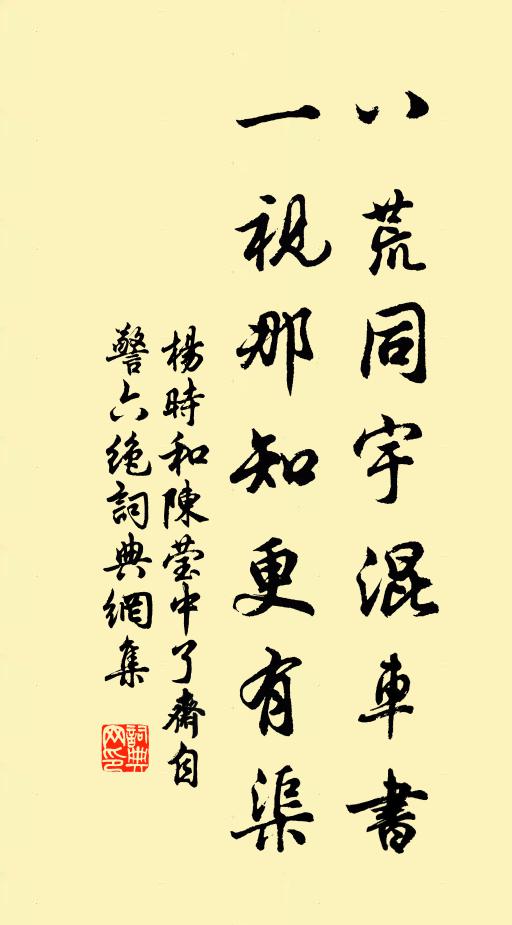 八荒同宇混車書
一視那知更有渠
楊時和陳瑩中了齋自
警六絶詞典網集
詞典網印